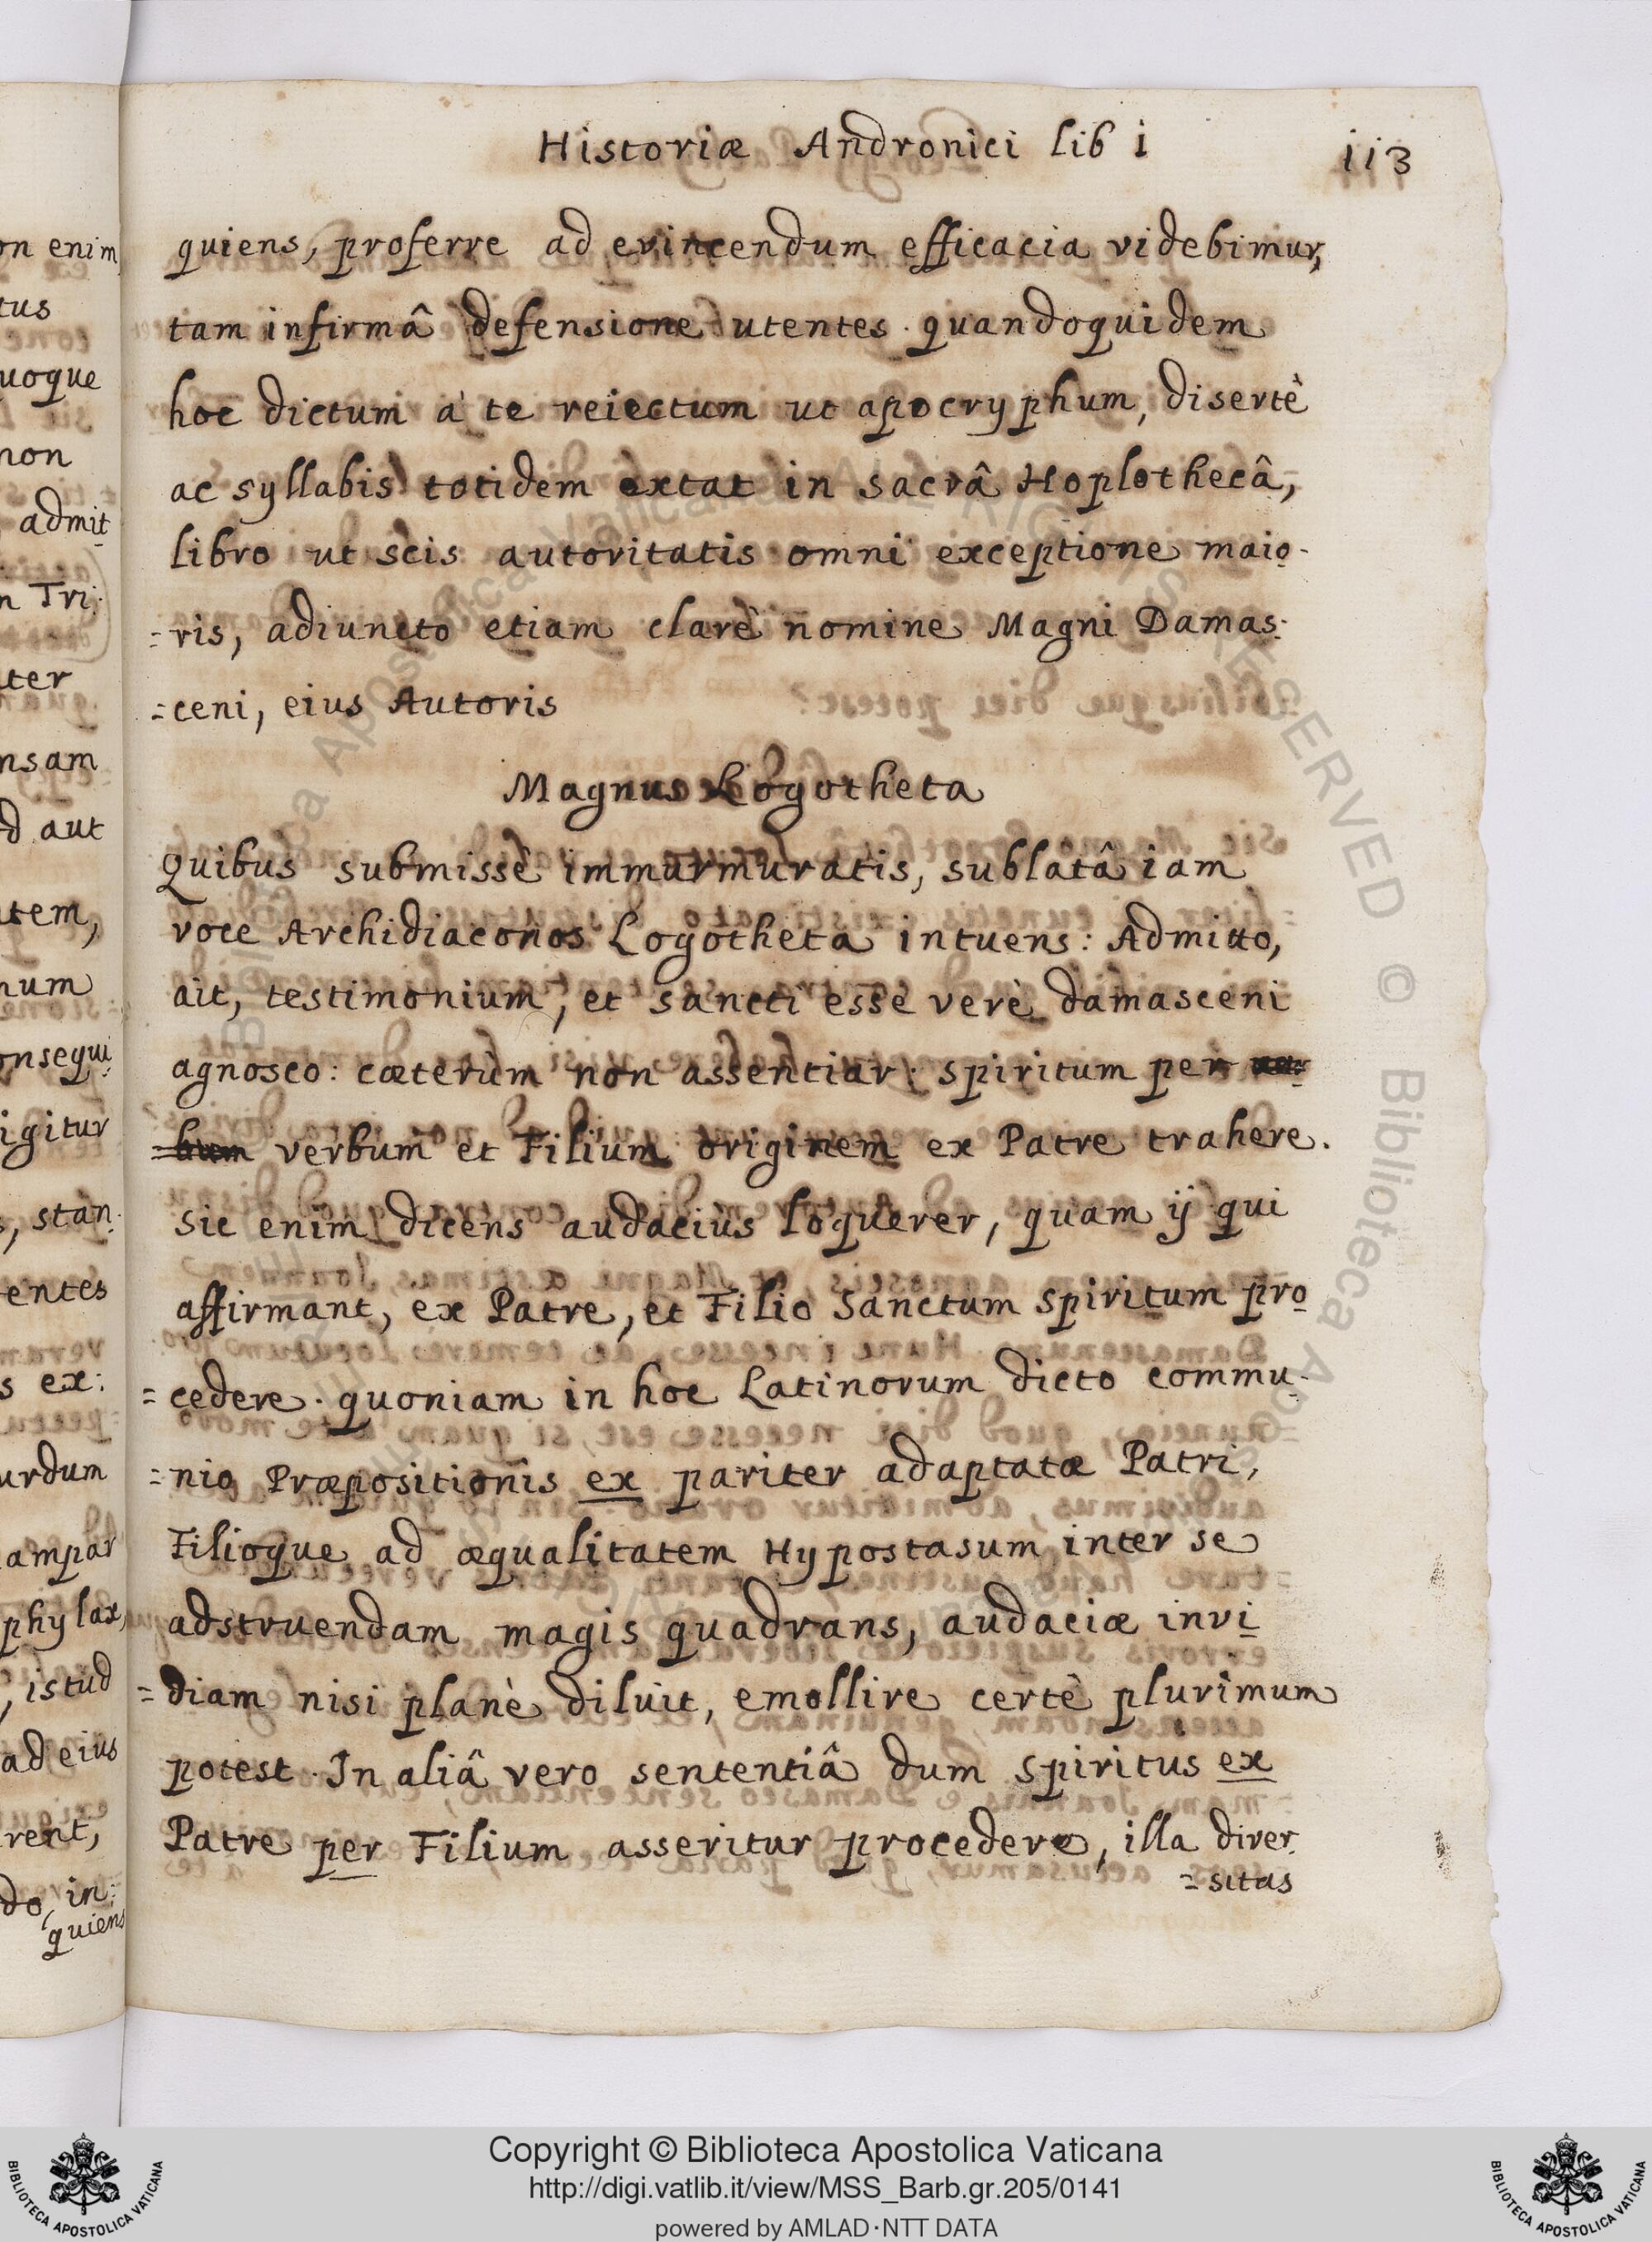 Historiæ Andronici lib i 113
quiens, proferre ad evincendum efficacia videbimur,
tam infirmâ defensione utentes. quandoquidem
hoc dictum à te reiectum ut apocryphum, disertè
ac syllabis totidem extat in sacrâ Hoplothecâ,
libro ut scis autoritatis omni exceptione maio-
=ris, adiuncto etiam clarè nomine Magni Damas:
=ceni, eius Autoris
Magnus Logotheta
Quibus submissè immurmuratis, sublatâ iam
voce Archidiaconos Logotheta intuens: Admitto,
ait, testimonium, et sancti esse verè damasceni
agnosco: cæterùm non assentiar: spiritum per
verbum et Filium originem ex Patre trahere.
sic enim dicens audacius loquerer, quam ij qui
affirmant, ex Patre, et Filio Sanctum Spiritum pro
=cedere. quoniam in hoc Latinorum dicto commu-
=nio Præpositionis ex pariter adaptatæ Patri,
Filioque ad æqualitatem Hypostasum inter se
adstruendam magis quadrans, audaciæ invi
=diam nisi planè diluit, emollire certè plurimum
potest. In aliâ vero sententiâ dum Spiritus ex
Patre per Filium asseritur procedere, illa diver.
=sitas
on enim
tus
uoque
non
admit
n Tri:
ter
nsam
d aut
tem,
num
onsequi
igitur
, stan:
entes
s ex:
urdum
ampar
phylax,
, istud
ad eius
rent,
do, in:
quiens
Copyright © Biblioteca Apostolica Vaticana
http://digi.vatlib.it/view/MSS_Barb.gr.205/0141
powered by AMLAD·NTT DATA
BIBLIOTECA APOSTOLICA VATICANA
BIBLIOTECA APOSTOLICA VATICANA